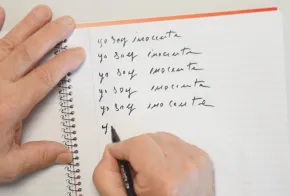 yo soy inocente
yo soy inocente
yo soy inocente
yo soy inocente
yo soy inocente
y